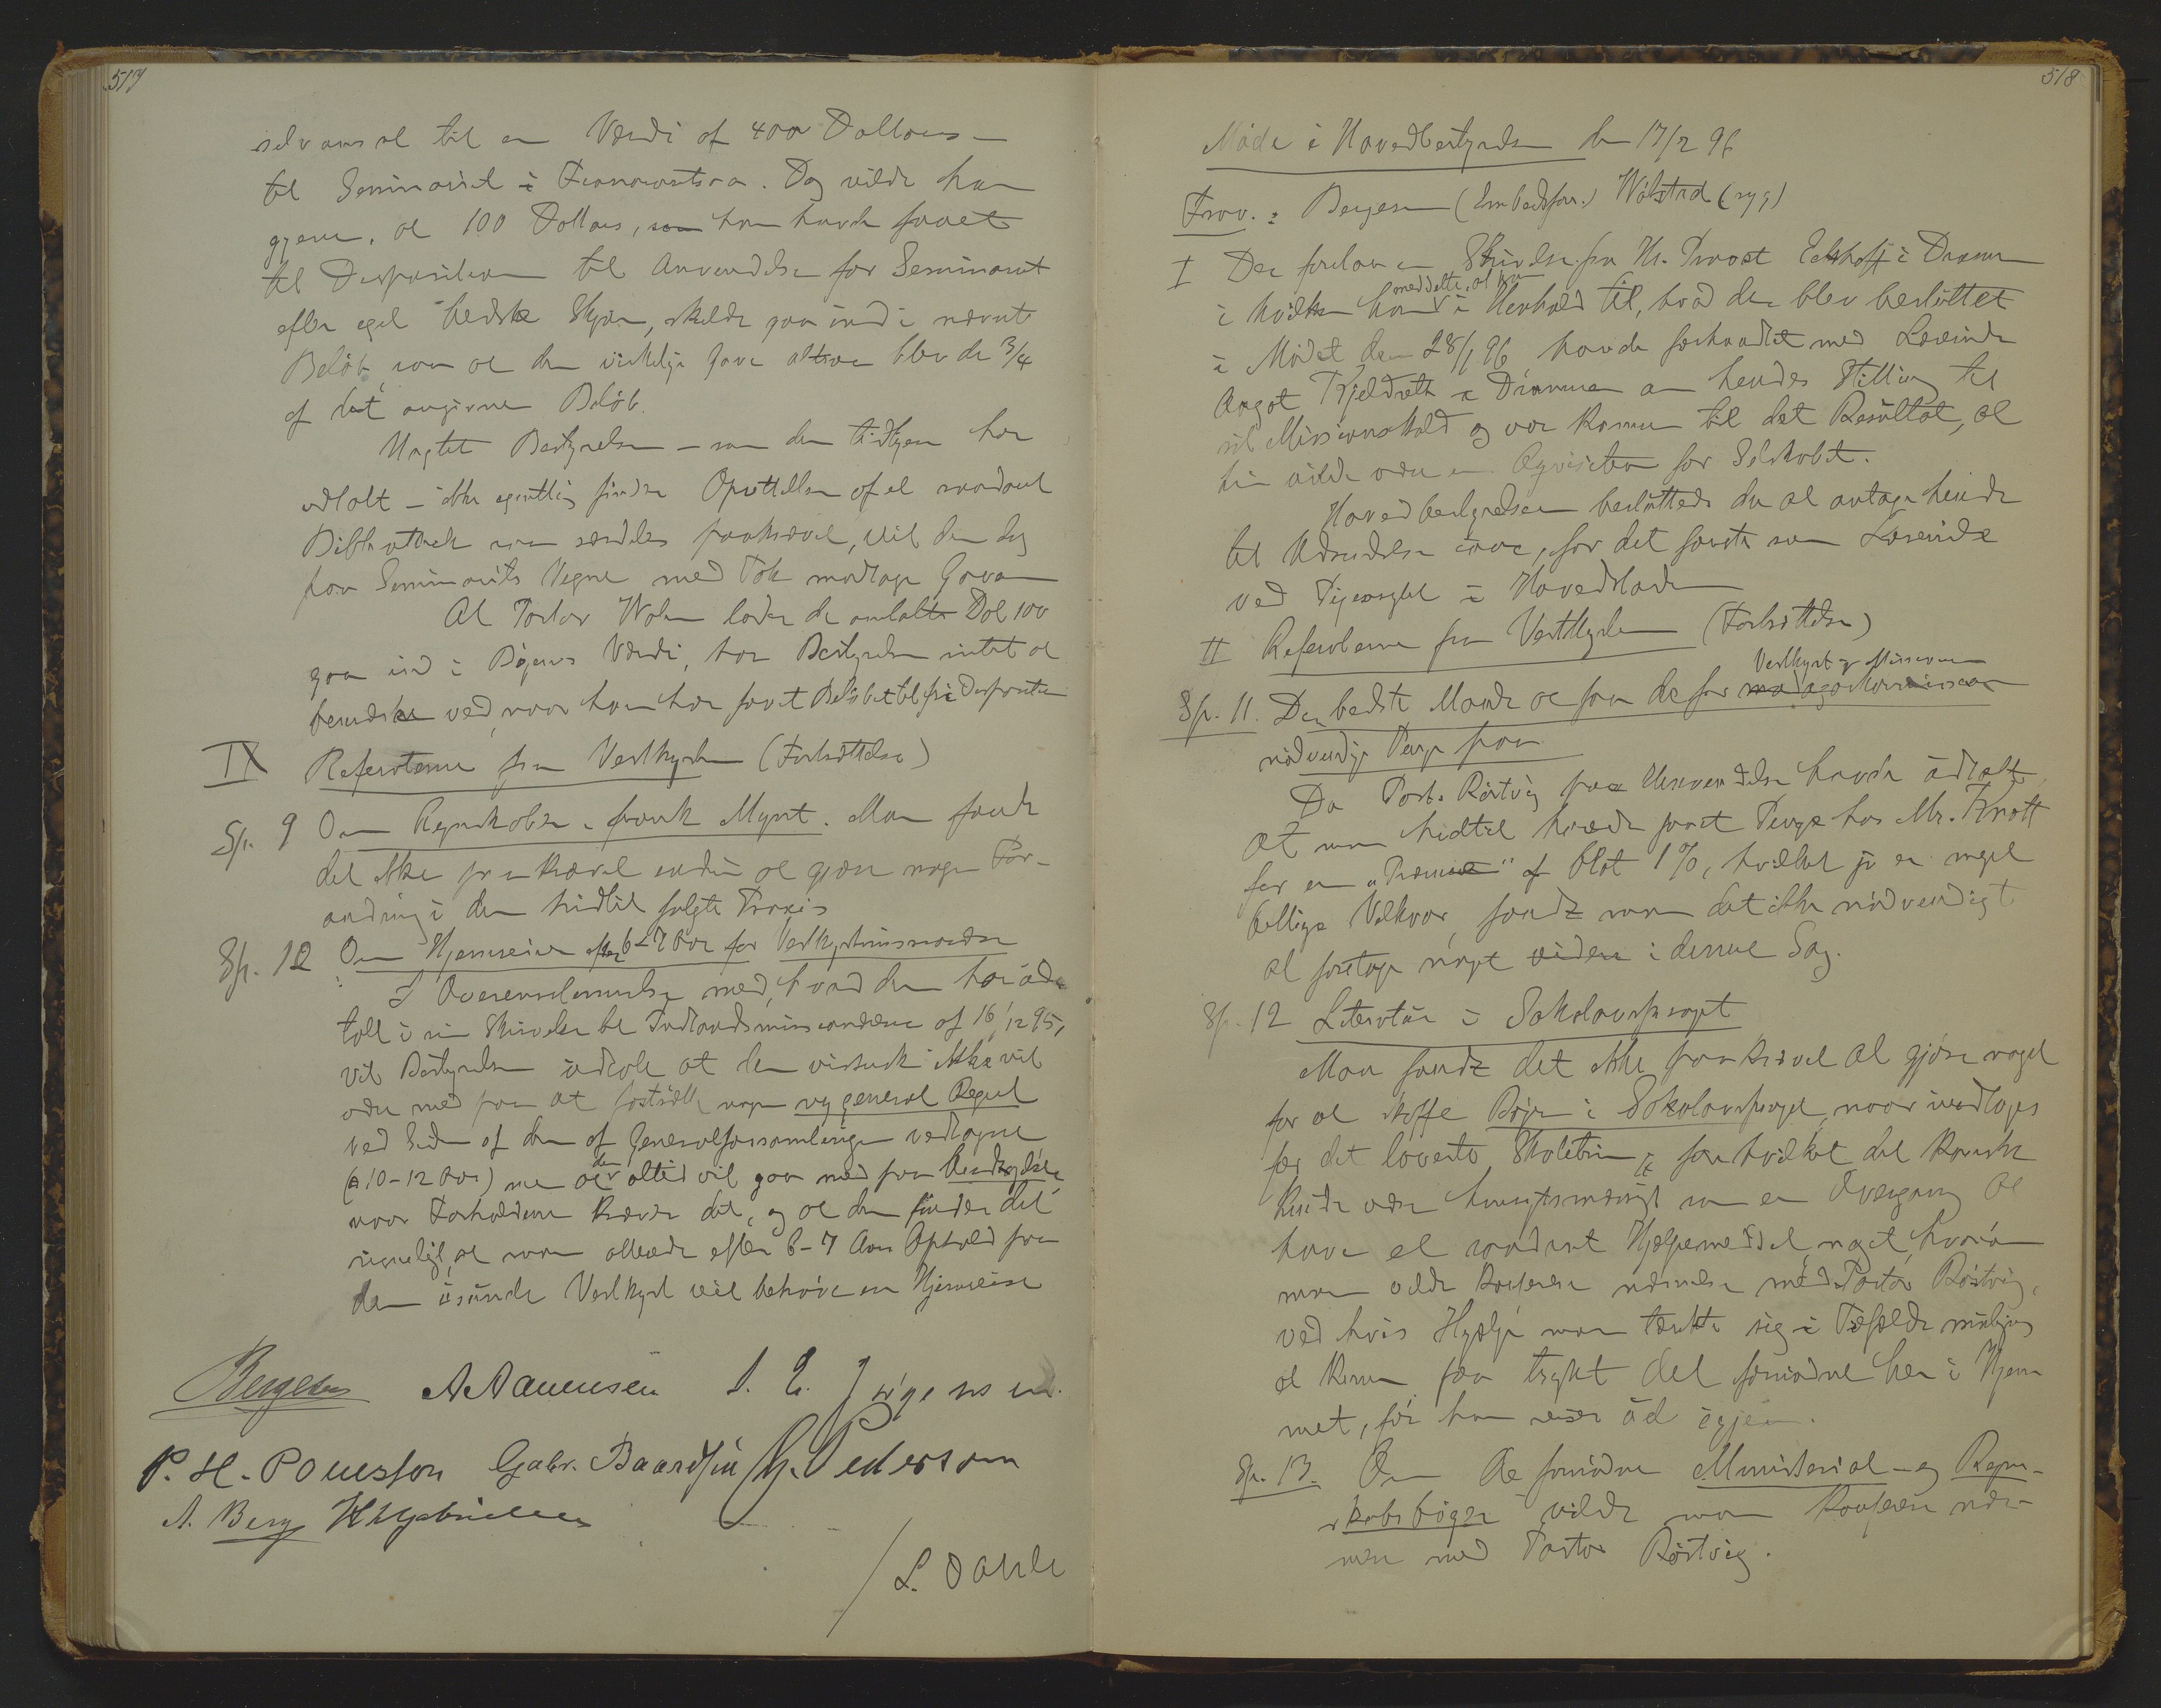 517
selv ansat til en Værdi af 400 Dollars –
til Seminariet i Fianarantsoa. Dog vilde han
gjerne, at 100 Dollars, som han havde faaet
til Disposition til Anvendelse for Seminariet
efter eget bedste Skjøn, skulde gaa ind i nævnte
Beløb, saa at den virkelige Gave altsaa blev de 3/4
af det angivne Beløb.
Uagtet Bestyrelsen – som den tidligere har
udtalt – ikke egentlig finder Oprettelsen af et saadant
Bibliothek saa særdeles paakrævet, vil den dog
paa Seminariets Vegne med Tak modtage Gaven
At Pastor Wolen lader de omtalte Dol 100
gaa ind i Bøgernes Værdi, har Bestyrelsen intet at
bemærke ved, naar han har faaet Beløbet til fri Disposition
IX Referaterne fra Vestkysten (Fortsættelse)
Sp. 9 Om Regnskaber i fransk Mynt. Man fandt
det ikke paakrævet endnu at gjøre nogen For-
andring i den hidtil fulgte Praxis
Sp. 12 Om Hjemreise efter 6-7 Aar for Vestkystmissionærer
I Overensstemmelse med, hvad den har ud-
talt i sin Skrivelse til Indlandsmissionærerne af 16/12 95,
vil Bestyrelsen udtale at den vistnok ikke vil
være med paa at fastsætte nogen ny general Regel
ved Siden af den af Generalforsamlingen vedtagne
(a 10-12 Aar) men at den altid vil gaa med paa Undtagelser
naar Forholdene kræver det, og at den finder det
rimeligt, at man allerede efter 6-7 Aars Ophold paa
den usunde Vestkyst vil behøve en Hjemreise
Bergesen A Aanensen S. E. Jørgensen.
P. H. Pouesson Gabr. Baardsen G. Pedersen
A. Berg H Gabrielsen
/ L. Dahle
518
Møde i Hovedbestyrelsen den 17/2 96
Frav.: Bergesen (Embedsforr.) Walstad (syg)
I Der forelaa en Skrivelse fra Hr. Provst Eckhoff i Drammen
i hvilken han meddelte, at han i Henhold til, hvad der blev besluttet
i Mødet den 28/1 96 havde forhandlet med Lærerinde
Aagot Kjeldseth i Drammen om hendes Stilling til
vil Missionskald og var kommen til det Resultat, at
hun vilde være en Aqvisition for Selskabet.
Hovedbestyrelsen besluttede da at antage hende
til Udsendelse iaar, for det første som Lærerinde
ved Pigeasylet i Hovedstaden
II Referaterne fra Vestkysten (Fortsættelse)
Sp. 11. Den bedste Maade at faa de for Vestkyst Missionen
nødvendige Penge paa
Da Past. Røstvig paa Henvendelse havde udtalt,
at man hidtil havde faaet Penge hos Mr. Knott
for en "Præmie" af blot 1 %, hvilket jo er meget
billige Vilkaar, fandt man det ikke nødvendigt
at foretage noget videre i denne Sag.
Sp. 12 Literatur i Sakalavsproget
Man fandt det ikke paakrævet at gjøre noget
for at skaffe Bøger i Sakalavsproget, naar undtages
for det laveste Skoletrin, for hvilket det kanske
kunde være hensigtsmæssigt som en Overgang at
have et saadant Hjælpemiddel, noget, hvorom
man vilde konferere nærmere med Pastor Røstvig,
ved hvis Hjælp man tænkte sig i Tilfælde muligens
at kunne faa trykt det fornødne her i Hjem-
met, før han reiser ud igjen.
Sp. 13. Om de fornødne Ministerial- og Regn-
skabsbøger vilde man konferere nær-
mere med Pastor Røstvig.